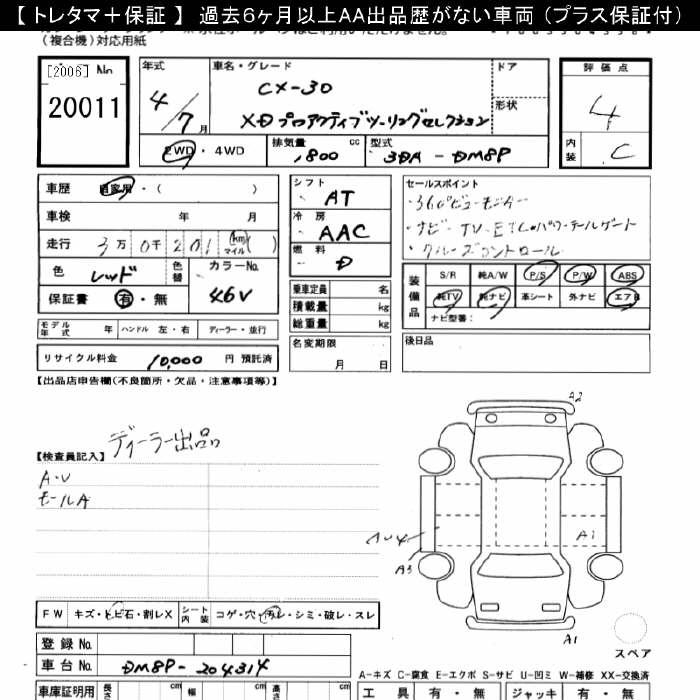 【 トレタマ＋保証 】 過去6ヶ月以上AA出品歴がない車両 (プラス保証付)
(複合機)対応用紙
[2006] No
20011
年式
4/7月
車名・グレード
CX-30
XD プロアクティブツーリングセレクション
ドア
形状
評価点
4
内装
C
2WD・4WD
排気量
1,800 cc
型式
3DA - DM8P
車歴
自家用・( )
車検 年 月
走行 3万0千201 (km マイル) ( )
色 レッド
色替
カラーNo.
46V
保証書 有・無
シフト
AT
冷房
AAC
燃料
D
セールスポイント
・360°ビューモニター
・ナビ・TV・ETC・パワーテールゲート
・クルーズコントロール
装備品
S/R 純A/W P/S P/W ABS
純TV 純ナビ 革シート 外ナビ エアB
ナビ型番:
乗車定員 名
積載量 kg
総重量 kg
モデル年式 年 ハンドル 左・右 ディーラー・並行
名変期限
月 日
後日品
リサイクル料金 10,000 円 預託済
【出品店申告欄(不良箇所・欠品・注意事項等)】
ディーラー出品
【検査員記入】
A・U
モールA
A2
A1
A3
A1
スペア
FW キズ・トビ石・割レX
シート内装 コゲ・穴・汚レ・シミ・破レ・スレ
登録 No.
車台 No. DM8P-204314
A-キズ C-腐食 E-エクボ S-サビ U-凹ミ W-補修 XX-交換済
車庫証明用 長さ cm 幅 cm 高さ cm
工具 有・無 ジャッキ 有・無